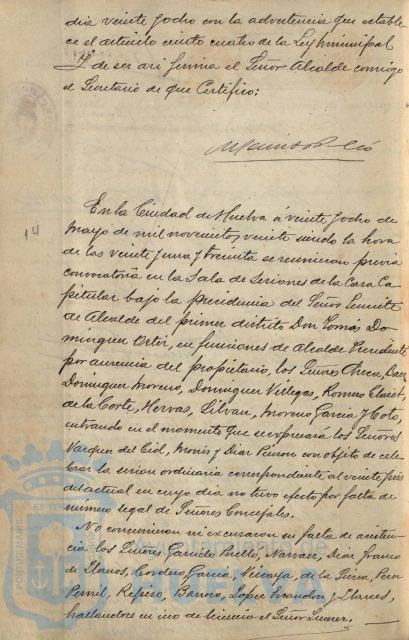 dia veinte y ocho con la advertencia que estable-
ce el articulo ciento cuatro de la Ley Municipal
Y de ser asi firma el Señor Alcalde conmigo
el Secretario de que Certifico:
14
En la Ciudad de Huelva á veinte y ocho de
Mayo de mil novecientos veinte siendo la hora
de las veinte y una y treinta se reunieron previa
convocatoria en la Sala de Sesiones de la Casa Ca
pitular bajo la presidencia del Señor Teniente
de Alcalde del primer distrito Don Tomás Do-
minguez Ortiz, en funciones de Alcalde Presidente
por ausencia del propietario, los Señores Checa, Baez,
Dominguez Moreno, Dominguez Villegas, Romero Claret,
de la Corte, Hervas, Silvan, Moreno Garcia y Soto,
entrando en el momento que se expresará los Señores
Vazquez del Cid, Monis y Diaz con objeto de cele-
brar la sesion ordinaria correspondiente al veinte y seis
del actual en cuyo dia no tuvo efecto por falta de
numero legal de Señores Concejales.
No concurrieron ni excusaron su falta de asisten-
cia los Señores Garrido Perelló, Narvaez, Diaz Franco
de Llanos, Cordero Garcia, Vizcaya, de la
Repero, López y Llanes,
hallandose en uso de licencia el Señor Suarez.